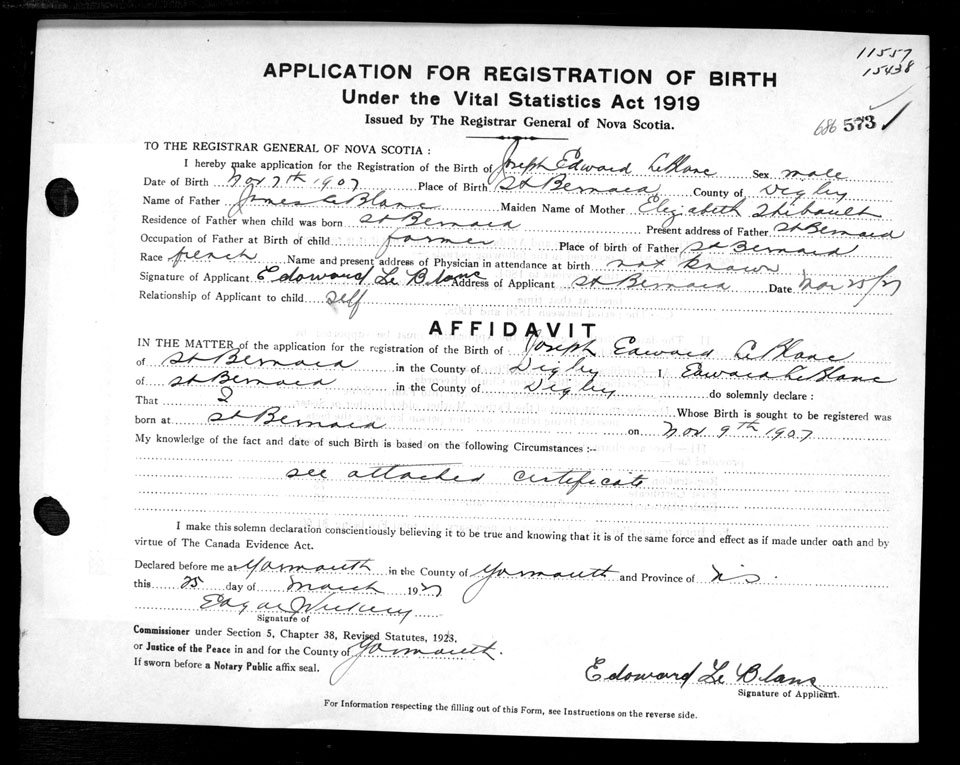 11557
15438
APPLICATION FOR REGISTRATION OF BIRTH
Under the Vital Statistics Act 1919
Issued by The Registrar General of Nova Scotia.
686 573
TO THE REGISTRAR GENERAL OF NOVA SCOTIA :
I hereby make application for the Registration of the Birth of Joseph Edward LeBlanc Sex male
Date of Birth Nov 9th 1907 Place of Birth St Bernard County of Digby
Name of Father James LeBlanc Maiden Name of Mother Elizabeth Thibault
Residence of Father when child was born St Bernard Present address of Father St Bernard
Occupation of Father at Birth of child farmer Place of birth of Father St Bernard
Race french Name and present address of Physician in attendance at birth not known
Signature of Applicant Edoward Le Blanc Address of Applicant St Bernard Date 25/27
Relationship of Applicant to child self
AFFIDAVIT
IN THE MATTER of the application for the registration of the Birth of Joseph Edward LeBlanc
of St Bernard in the County of Digby I, Edward LeBlanc
of St Bernard in the County of Digby do solemnly declare :
That I Whose Birth is sought to be registered was
born at St Bernard on Nov 9th 1907
My knowledge of the fact and date of such Birth is based on the following Circumstances :--
see attached certificate
I make this solemn declaration conscientiously believing it to be true and knowing that it is of the same force and effect as if made under oath and by
virtue of The Canada Evidence Act.
Declared before me at Yarmouth in the County of Yarmouth and Province of N.S.
this 25 day of March 1927
Edgar
Signature of
Commissioner under Section 5, Chapter 38, Revised Statutes, 1923,
or Justice of the Peace in and for the County of Yarmouth.
If sworn before a Notary Public affix seal.
Edoward Le Blanc
Signature of Applicant.
For Information respecting the filling out of this Form, see Instructions on the reverse side.